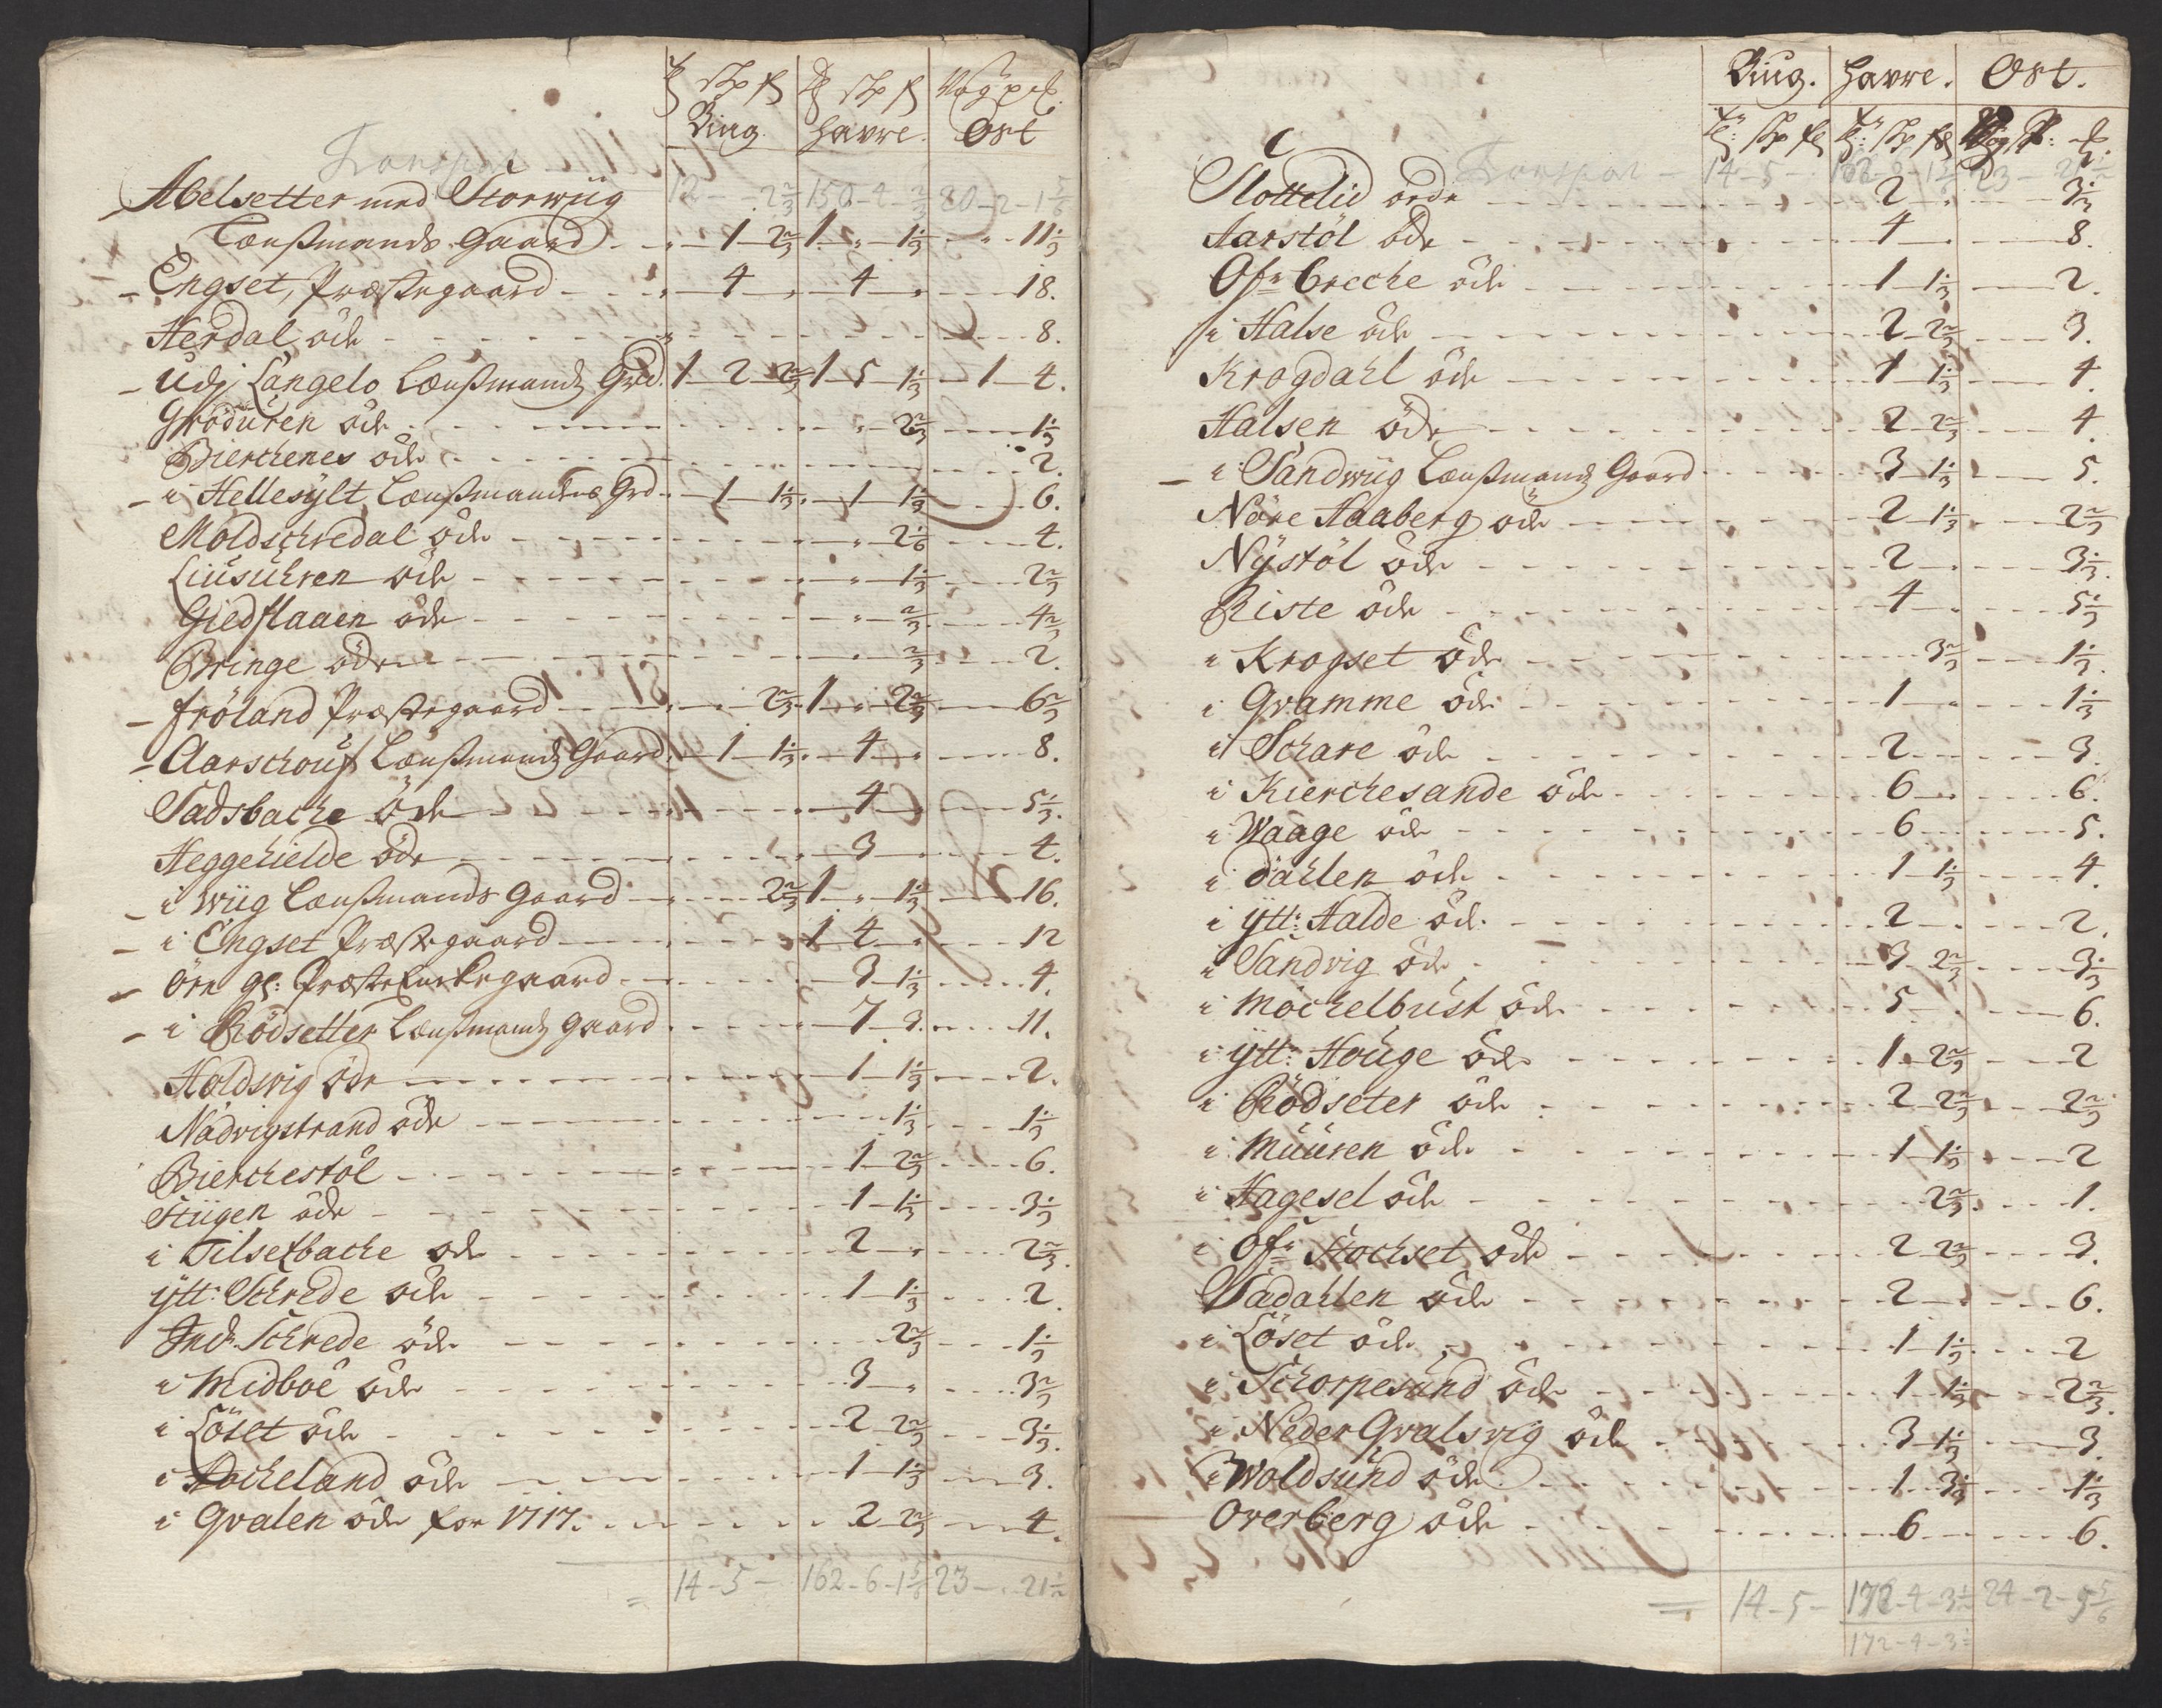 Biug. Havre. Ost
Transport 12 - - 2 2/3 150 - 2 - 2/3 20 - 2 - 1 5/6
Abelsetter med Storwüg
Lænßmands Gaard - 1 2 2/3 1 " 1 1/3 " 11 1/3
Engset, Præstegaard - 4 " 4 " 18.
Herdal öde 8.
Udj Langelo Lænßmands Grd. 1 2 2 2/3 1 5 1 1/3 1 4.
Gröduren öde " 2 2/3 1 1/3
Bierchenes öde 2.
i Hellesylt Lænßmandens Grd. 1 1 1/3 1 1 1/3 6.
Moldschredal öde " 2 1/6 4.
Liusuhren öde " 1 1/3 2 2/3
Giedslaaen öde " 2/3 4 2/3
Bringe öde " 2/3 2.
Fröland Præstegaard 2 2/3 1 " 2 2/3 6 2/3
Aarschouf Lænßmands Gaard 1 1 1/3 4 " 8.
Sadsbache öde 4 5 1/3.
Heggehielde öde 3 4.
i Wiig Lænßmands Gaard 2 2/3 1 " 1 1/3 16.
i Engset Præstegaard 1 4 " 12
Örn gl: Præste Enkegaard 3 1 1/3 4.
i Rödsetter Lænßmands Gaard 7 3. 11.
Holdsvig öde 1 1 1/3 2.
Nadvigstrand öde 1 1/3 1 1/3
Bierchestöl 1 2 2/3 6.
Stügen öde 1 1 1/3 3 1/3
i Tilsetbache öde 2 " 2 2/3.
ytt: Schrede öde 1 1 1/3 2.
Indr. Schrede öde 2 2/3 1 1/3
i Midboe öde 3 " 3 2/3
i Löset öde 2 2 2/3 3 1/3.
i Aocheland öde 1 1 1/3 3.
i Qvalen öde for 1717. 2 2 2/3 4.
= 14 - 5 - 162 - 6 - 1 5/6 23 - . 21 1/2
Biug. Havre. Ost.
Transport - 14 - 5 - 162 - 6 - 1 5/6 23 - 21 1/2
Slottelid öde 2 " 3 1/3
Aarstöl öde 4 8.
Ofr Brecke öde 1 1 1/3 2.
i Halse öde 2 2 2/3 3.
Krogdahl öde 1 1 1/3 4.
Halsen öde 2 2 2/3 4.
i Sandwiig Lænßmands Gaard 3 1 1/3 5.
Nöre Aaberg öde 2 1 1/3 2 2/3
Nÿstöl öde 2 3 1/3.
Riste öde 4 5 1/3
i Krogset öde 3 2/3 1 1/3.
i Gramme öde 1 " 1 1/3
i Schare öde 2 3.
i Kierchesande öde 6 6.
i Waage öde 6 5.
i Dahlen öde 1 1 1/3 4.
i ytt: Halde öde 2 2.
i Sandvig öde 3 2 2/3 3 1/3
i Mochelbust öde 5 6.
i ytt: Houge öde 1 2 2/3 2
i Rödseter öde 2 2 2/3 2 2/3
i Muuren öde 1 1 1/3 2
i Hagesel öde 2 2/3 1.
i Ofr Stochset öde 2 2 2/3 3.
Sadahlen öde 2 6.
i Löset öde 1 1 1/3 2
i Schorpesund öde 1 1 1/3 2 2/3.
i Neder Qvalsvig öde 3 1 1/3 3.
i Woldsund öde 1 3 1/3 1 1/3
Overberg öde 6 6.
= 14 - 5 - 172 - 4 - 3 1/2 24 - 2 - 9 5/6
172 - 4 - 3 1/2